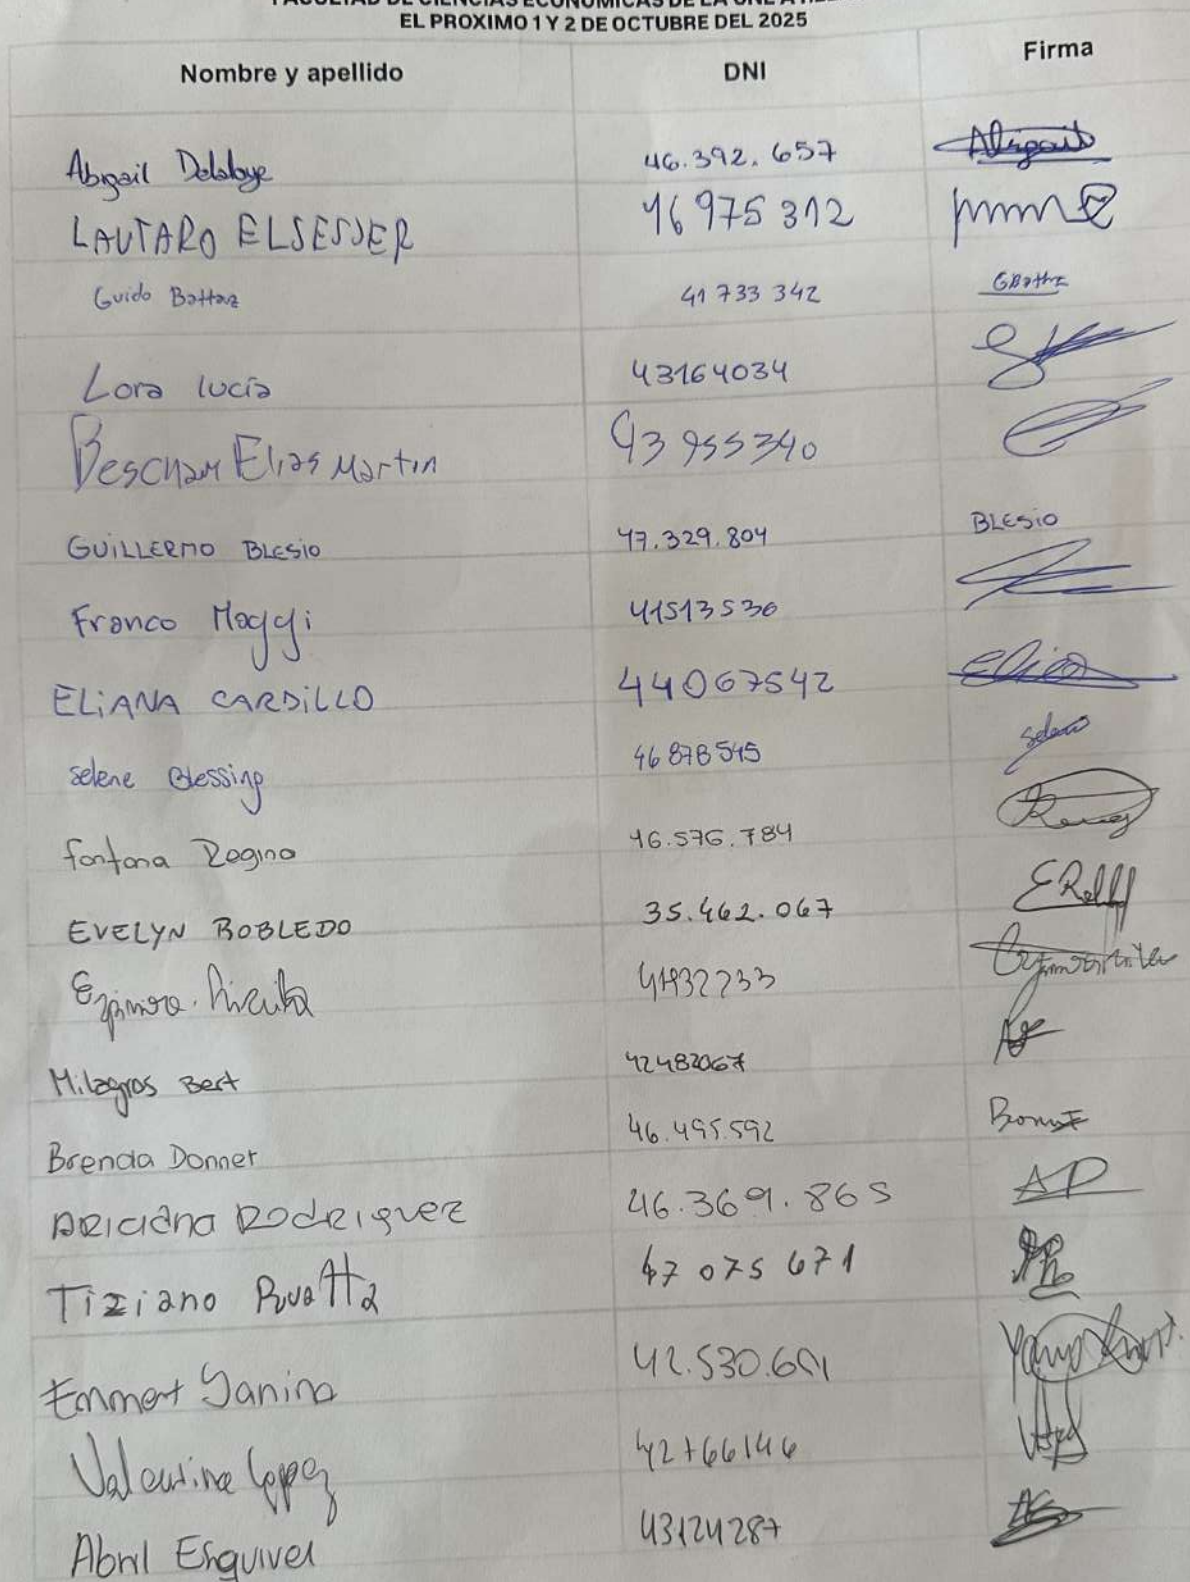 FACULTAD DE CIENCIAS ECONOMICAS DE LA UNL
EL PROXIMO 1 Y 2 DE OCTUBRE DEL 2025
Nombre y apellido DNI Firma
Abigail Delaloye 46.392.657 Abigail
LAUTARO ELSESSER 46 975 312
Guido Battaz 41 733 342 GBattaz
Lora lucía 43164034
Bescham Elias Martin 43 955340
GUILLERMO BLESIO 47.329.804 BLESIO
Franco Maggi 41513530
ELIANA CARDILLO 44067542
selene Blessing 46 878 545 selene
fontana Regina 46.576.784
EVELYN ROBLEDO 35.462.067
41932733
Milagros Bert 42482067
Brenda Donnet 46.495.592
ARIADNA RODRIGUEZ 46.369.865
Tiziano Ruatta 47 075 671
Emmert Yanina 42.530.691
Valentina Lopez 42766146
Abril Esquivel 43124287